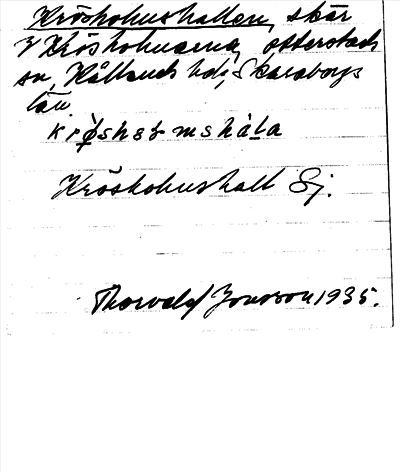 Krösholmshallen, skär
i Krösholmarna, Otterstads
sn, Kållands hd, Skaraborgs
län.
Krösholmshall Sj.
Thorvald Jonsson 1935.